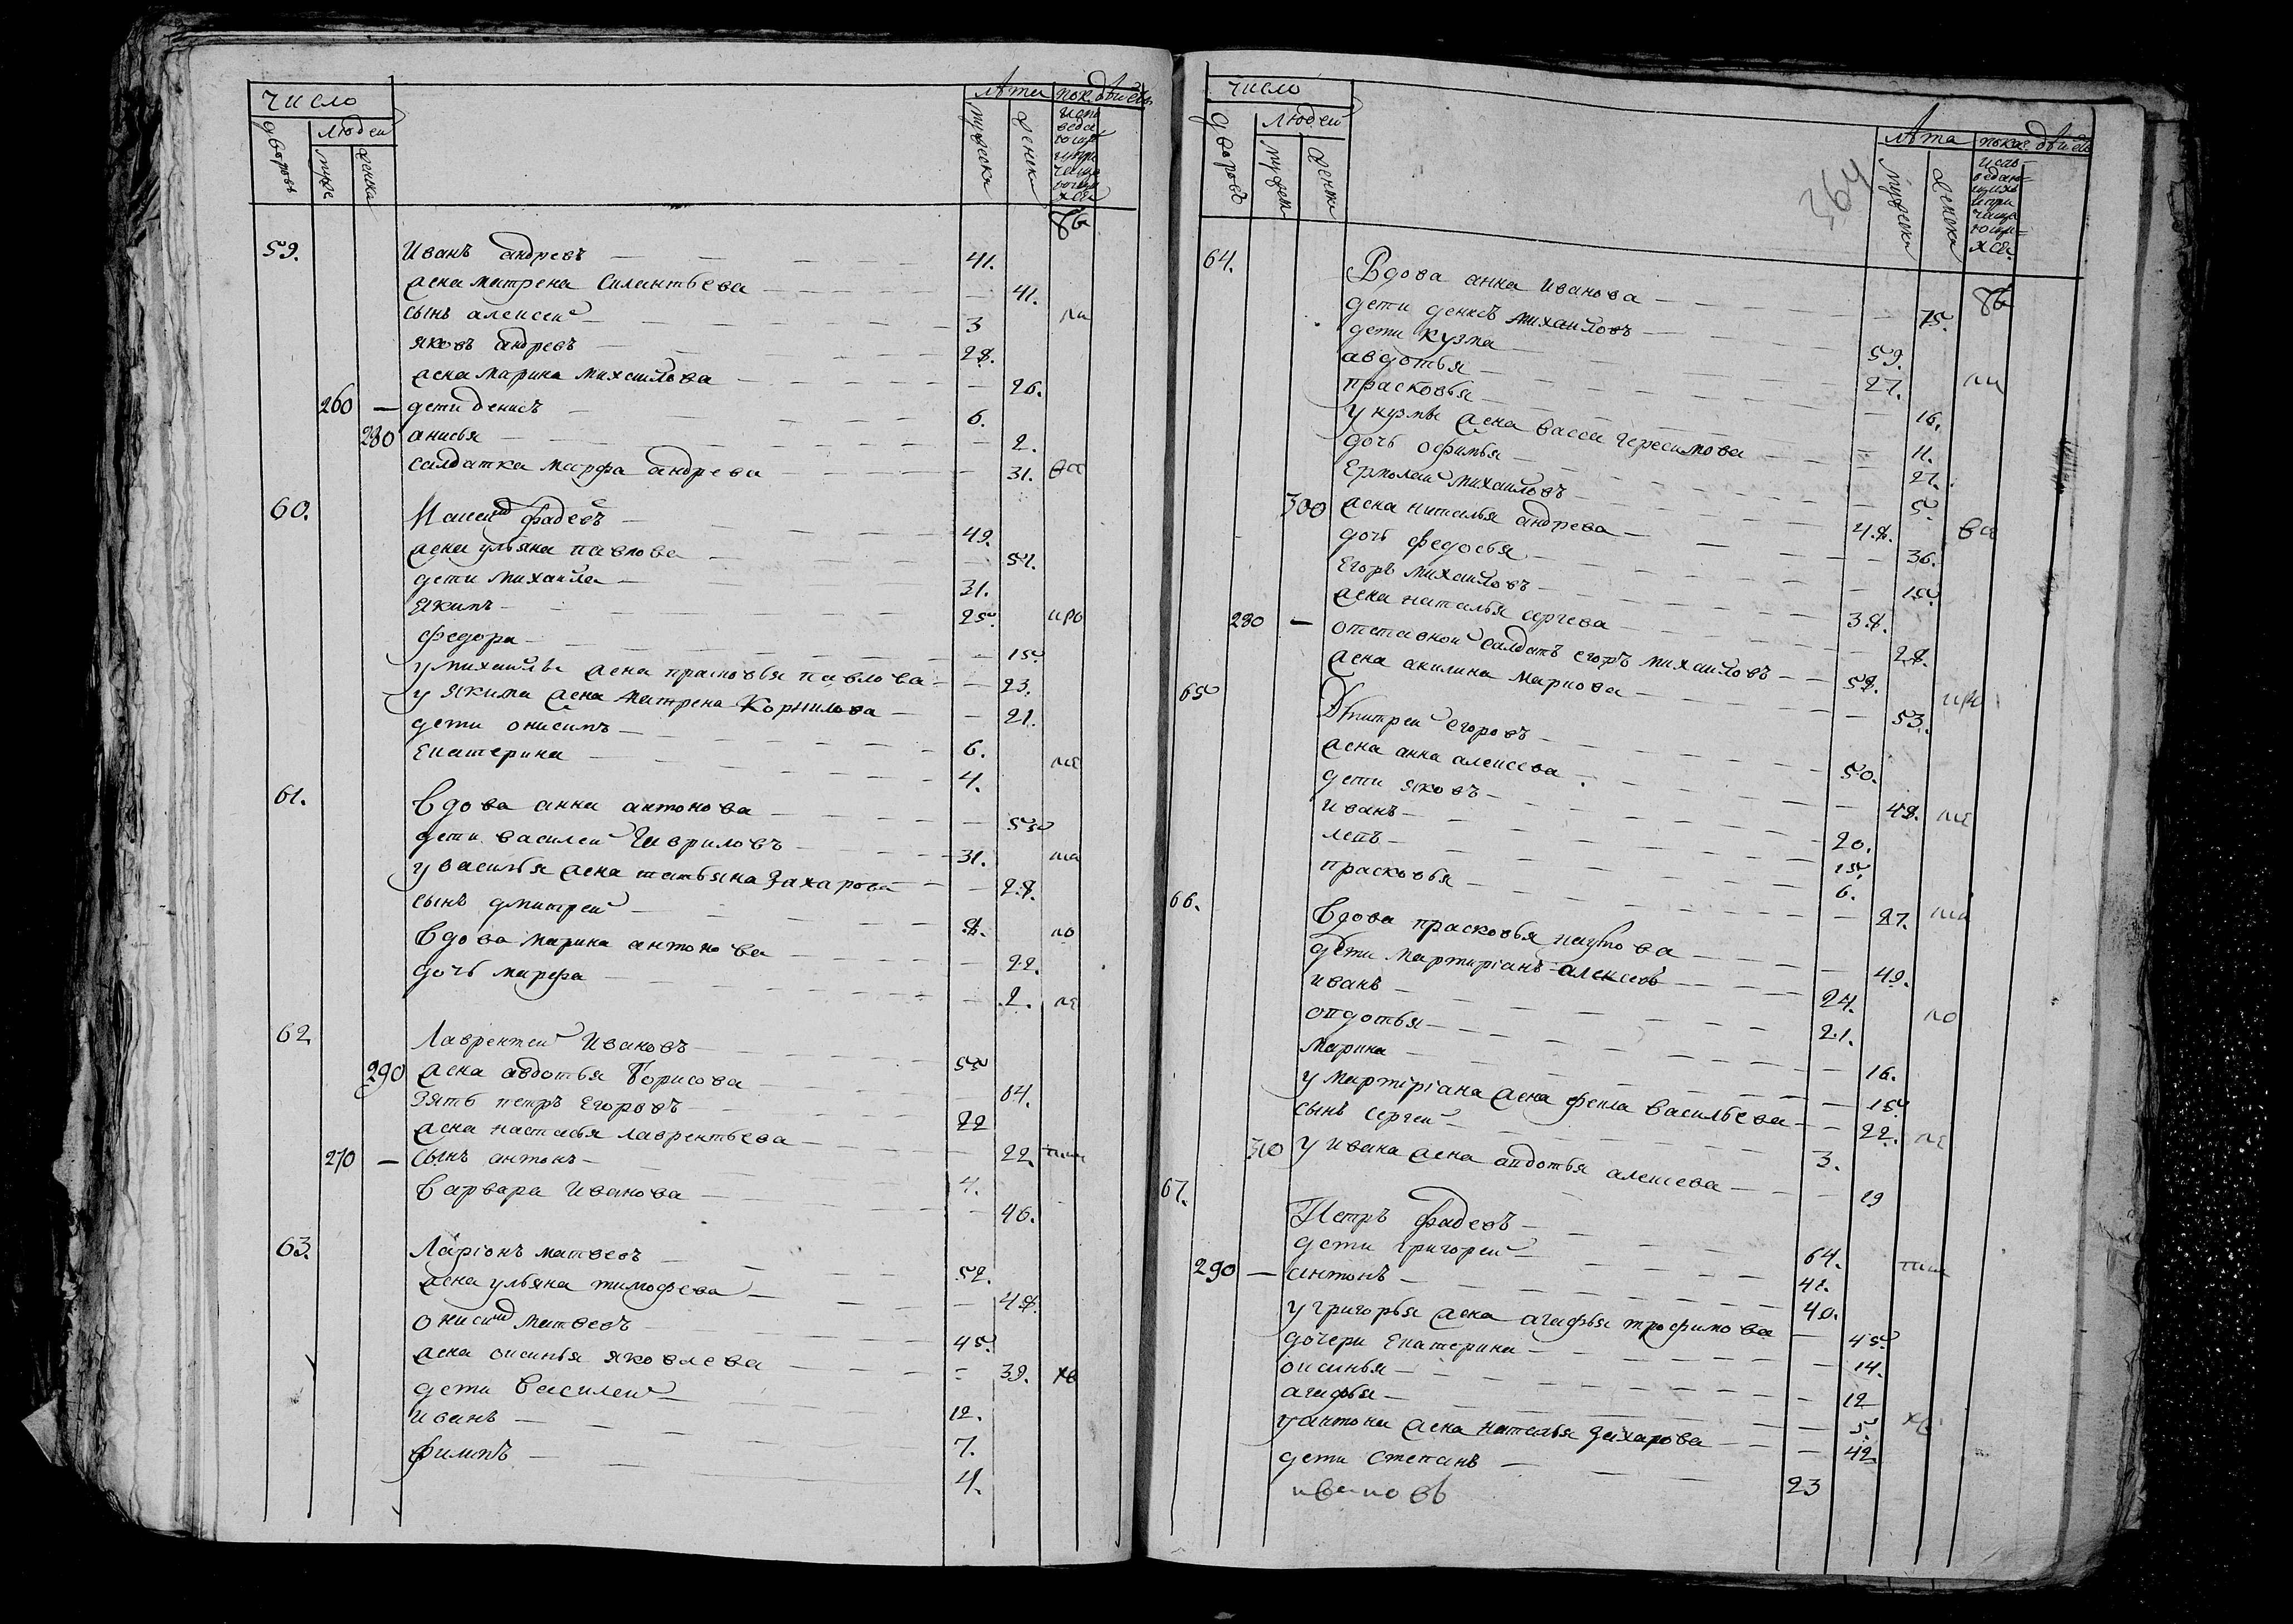 число
людей
дворовъ
муже
женка
Лѣта
мужеска
женска
59. Иванъ андревъ 41.
жена матрена Силантьева 41.
сынъ алексей 3
яковъ андревъ 28.
жена марина михаилова 26.
260 — дети денисъ 6.
280 анисья 2.
салдатка марфа андрева 31.
60. Максим фадеевъ 49.
жена ульяна павлова 51.
дети михаила 31.
якимъ 25.
федора 15.
у михаилы жена прасковья павлова 23.
у якима жена матрена Корнилова 21.
дети онисимъ 6.
Екатерина 4.
61. вдова анна антонова 55
дети василеи Гавриловъ 31.
у василья жена татьяна Захарова 28.
сынъ дмитреи 8.
вдова марина антонова 22.
дочь марфа 2.
62 Лаврентеи Ивановъ 55
290 жена авдотья Борисова 64.
зять петръ Егоровъ 22
жена настасья лаврентьева 22.
270 — сынъ антонъ 4.
варвара Иванова 46.
63. Ларіонъ матвеевъ 52.
жена ульяна тимофеева 48.
онисим матвеевъ 45.
жена оксинья яковлева 39.
дети василеи 12.
иванъ 7.
филипъ 4.
число
людей
дворовъ
мужеск
женска
364
Лѣта
мужеска
женска
64. Вдова анна Иванова 75.
дети денисъ михаиловъ 59.
дети кузма 27.
авдотья 16.
прасковья 11.
у кузмы жена васса герасимова 27.
дочь офимья 5.
Ермолаи михаиловъ 48.
300 жена наталья андрева 36.
дочь федосья 15.
Егоръ михаиловъ 38.
жена наталья сергева 28.
280 — отставнои салдатъ егоръ михаиловъ 58.
жена акилина маркова 53.
65 Дмитреи егоровъ 50.
жена анна алексева 48.
дети яковъ 20.
иванъ 15.
лепъ 6.
прасковья 27.
66. вдова прасковья наумова 49.
дети мартиріанъ алексеевъ 24.
иванъ 21.
опдотья 16.
марина 15
у мартиріана жена фекла васильева 22.
сынъ сергеи 3.
310 у ивана жена апдотья алексева 19
67. Петръ Фадеевъ 64.
дети григореи 42.
290 — антонъ 40.
у григорья жена агафья трофимова 45.
дочери Екатерина 14.
оксинья 12
агафья 5.
у антона жена наталья захарова 42
дети степанъ 23